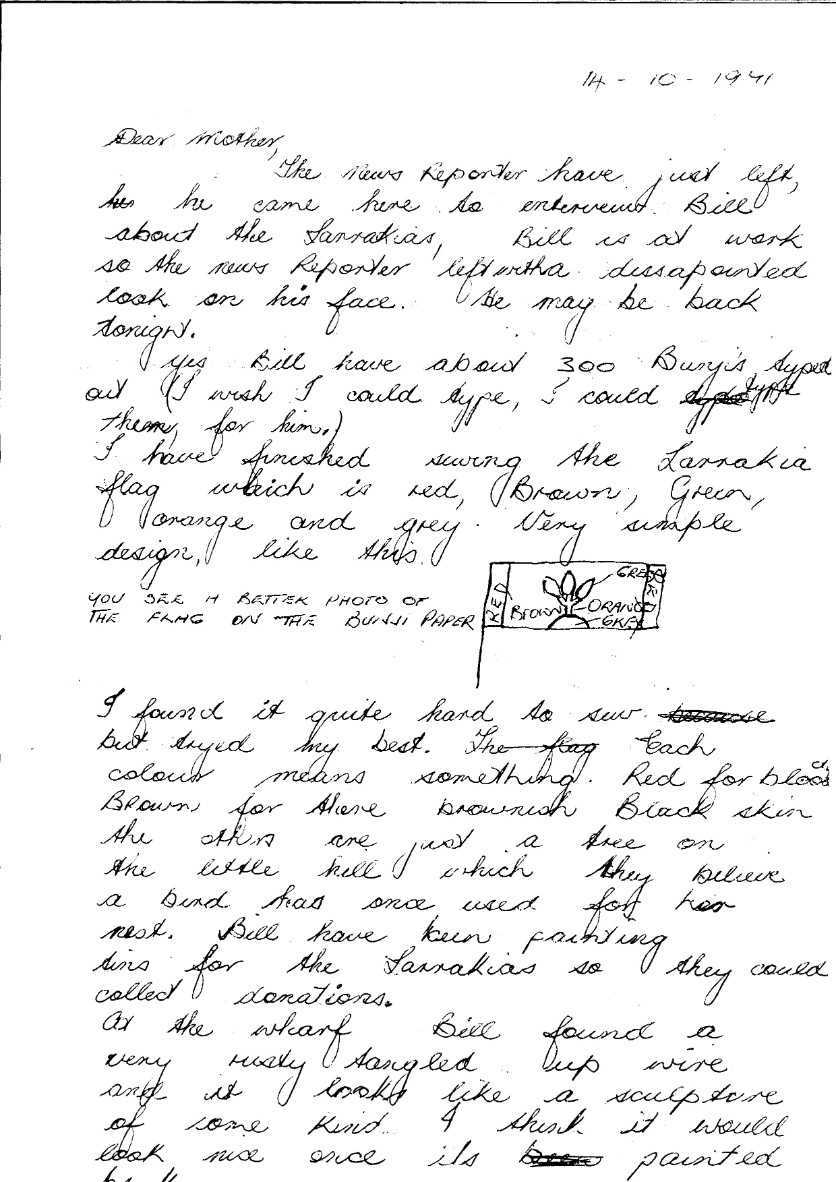 14 - 10 - 1971
Dear Mother,
The News Reporter have just left,
he came here to enterveiw Bill
about the Larrakias, Bill is at work
so the news Reporter left witha dissapointed
look on his face. He may be back
tonight.
Yes Bill have about 300 Bunji's typed
out (I wish I could type, I could type
them, for him.)
I have finished sewing the Larrakia
flag which is red, Brown, Green,
orange and grey. Very simple
design, like this.
YOU SEE A BETTER PHOTO OF
THE FLAG ON THE BUNJI PAPER
RED BROWN GREEN ORANGE GREY RED
I found it quite hard to sew because
but tryed my best. The flag Each
colour means something. Red for blood
Brown for there brownish Black skin
the others are just a tree on
the little hill which they believe
a bird has once used for her
nest. Bill have been painting
tins for the Larrakias so they could
collect donations.
At the wharf Bill found a
very rusty tangled up wire
and it looks like a sculpture
of some kind I think it would
look nice once its been painted